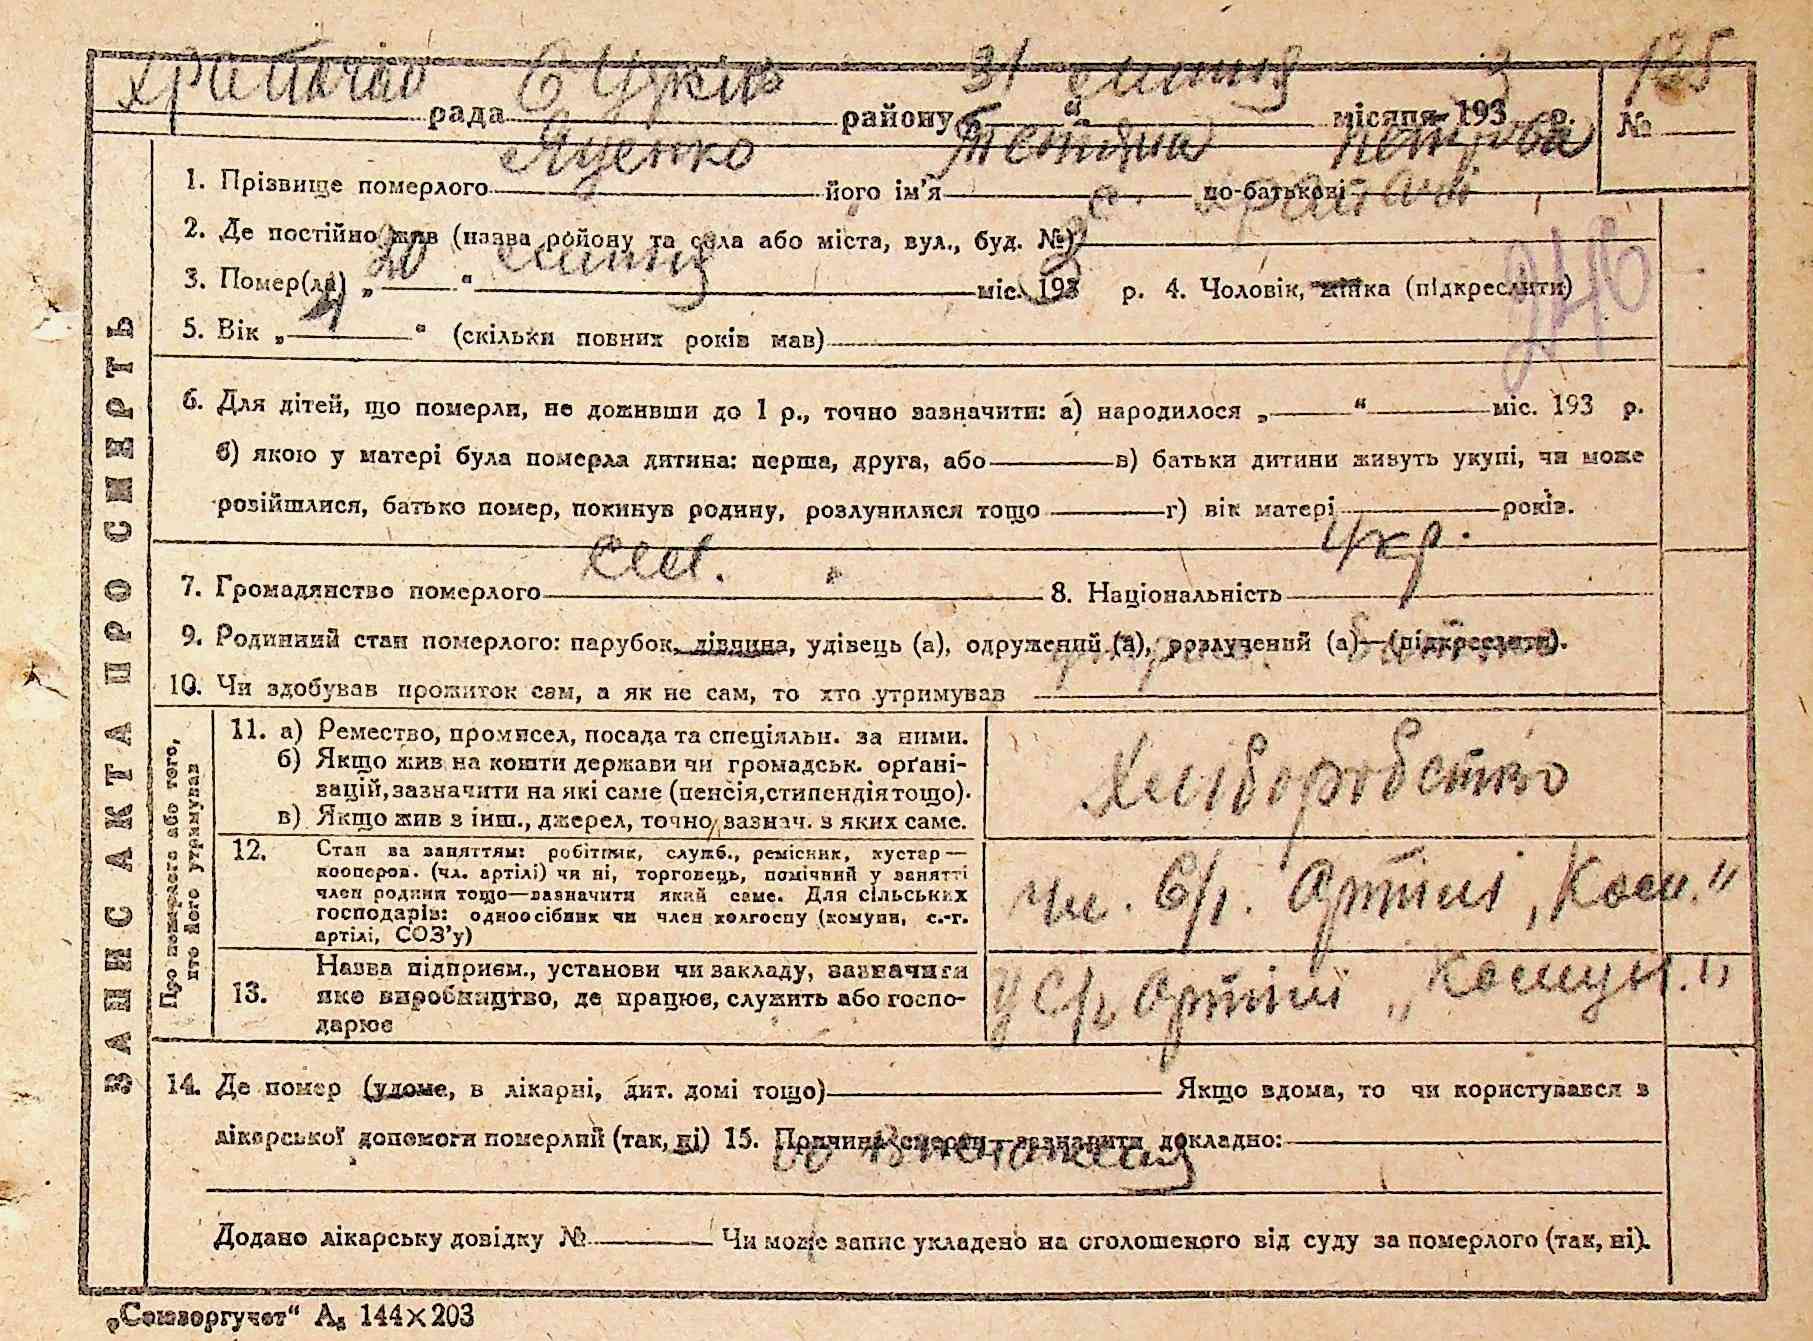 Храпачів рада Б Церків району „31“ липня місяця 1933 р. № 125
ЗАПИС АКТА ПРО СМЕРТЬ
1. Прізвище померлого Яценко його ім'я Тетяна по-батькові Петрова
2. Де постійно жив (назва району та села або міста, вул., буд. №) с. Храпачі
246
3. Помер(ла) „20“ липня міс. 1933 р. 4. Чоловік, жінка (підкреслити)
5. Вік „4“ (скільки повних років мав)
6. Для дітей, що померли, не доживши до 1 р., точно зазначити: а) народилося „ “ міс. 193 р.
б) якою у матері була померла дитина: перша, друга, або в) батьки дитини живуть укупі, чи може
розійшлися, батько помер, покинув родину, розлучилися тощо г) вік матері років.
7. Громадянство померлого 8. Національність Укр.
9. Родинний стан померлого: парубок, дівчина, удівець (а), одружений (а), розлучений (а) (підкреслити).
10. Чи здобував прожиток сам, а як не сам, то хто утримував
Про померлого або того, хто його утримував
11. а) Ремество, промисел, посада та спеціяльн. за ними.
б) Якщо жив на кошти держави чи громадськ. організацій, зазначити на які саме (пенсія, стипендія тощо).
в) Якщо жив з інш., джерел, точно зазнач. з яких саме.
Хліборобство
12. Стан за заняттям: робітник, служб., ремісник, кустар—
кооперов. (чл. артілі) чи ні, торговець, помічний у занятті
член родини тощо—зазначити який саме. Для сільських
господарів: одноосібник чи член колгоспу (комуни, с.-г.
артілі, СОЗ'у)
чл. С/г. Артілі „Ком."
13. Назва підприєм., установи чи закладу, зазначити
яке виробництво, де працює, служить або господарює
у С/г Артілі „Комун."
14. Де помер (удома, в лікарні, дит. домі тощо) Якщо вдома, то чи користувався з
лікарської допомоги померлий (так, ні) 15. Причина смерти зазначити докладно:
Додано лікарську довідку № Чи може запис укладено на оголошеного від суду за померлого (так, ні).
„Союзоргучет“ А₅ 144×203